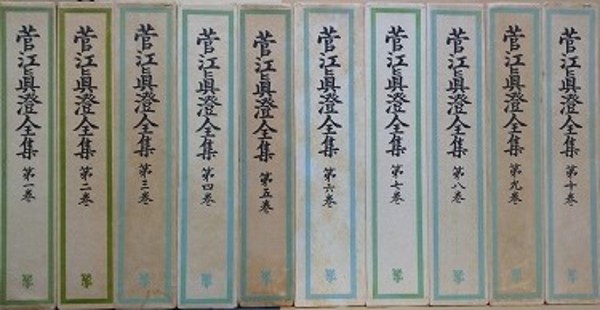 菅江眞澄全集 第一巻
菅江眞澄全集 第二巻
菅江眞澄全集 第三巻
菅江眞澄全集 第四巻
菅江眞澄全集 第五巻
菅江眞澄全集 第六巻
菅江眞澄全集 第七巻
菅江眞澄全集 第八巻
菅江眞澄全集 第九巻
菅江眞澄全集 第十巻